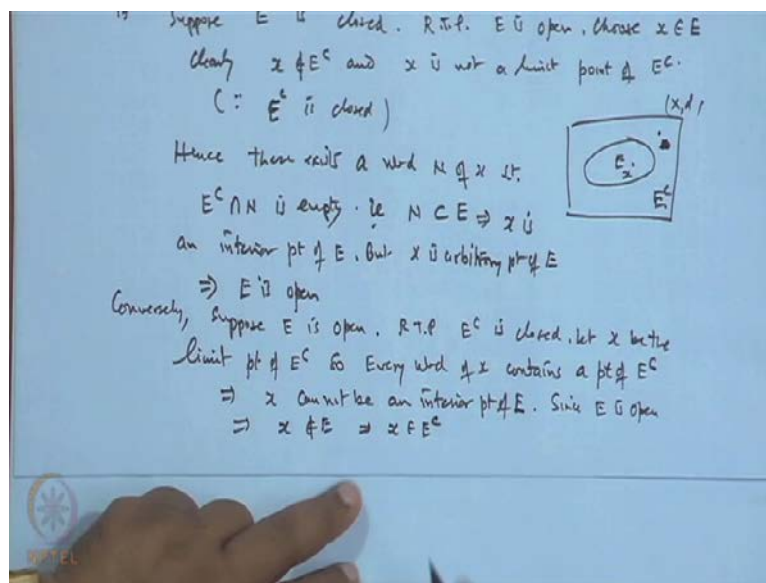 Suppose E is closed. R.T.P. E is open. Choose x ∈ E
Clearly x ∉ E^c and x is not a limit point of E^c.
(∵ E^c is closed)
(X, d)
Hence there exists a nbd N of x st.
E^c ∩ N is empty. ie N ⊂ E ⇒ x is
E x
E^c
an interior pt of E. But x is arbitrary pt of E
⇒ E is open
Conversely, Suppose E is open. R.T.P E^c is closed. let x be the
limit pt of E^c So Every nbd of x contains a pt of E^c
⇒ x cannot be an interior pt of E. Since E is open
⇒ x ∉ E ⇒ x ∈ E^c
NPTEL